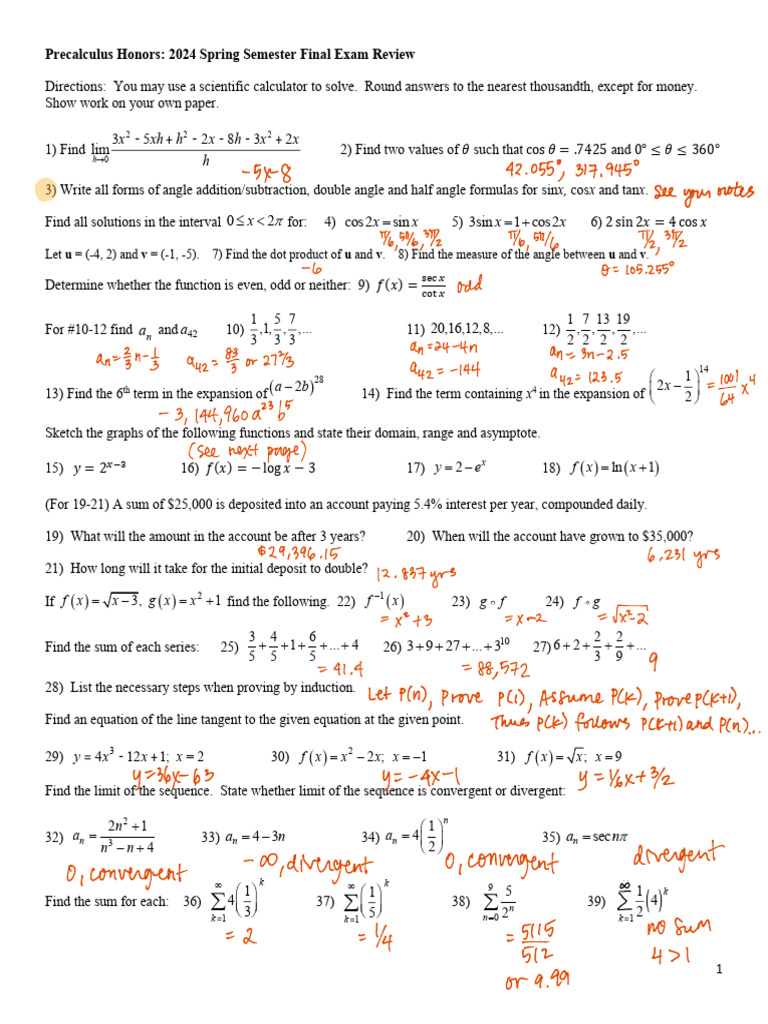 Precalculus Honors: 2024 Spring Semester Final Exam Review
Directions: You may use a scientific calculator to solve. Round answers to the nearest thousandth, except for money.
Show work on your own paper.
1) Find lim h→0 (3x² - 5xh + h² - 2x - 8h - 3x² + 2x)/h 2) Find two values of θ such that cos θ = .7425 and 0° ≤ θ ≤ 360°
-5x-8 42.055°, 317.945°
3) Write all forms of angle addition/subtraction, double angle and half angle formulas for sinx, cosx and tanx. See your notes
Find all solutions in the interval 0 ≤ x < 2π for: 4) cos2x = sin x 5) 3sin x = 1 + cos2x 6) 2 sin 2x = 4 cos x
π/6, 5π/6, 3π/2 π/6, 5π/6 π/2, 3π/2
Let u = (-4, 2) and v = (-1, -5). 7) Find the dot product of u and v. 8) Find the measure of the angle between u and v.
-6 θ = 105.255°
Determine whether the function is even, odd or neither: 9) f(x) = sec x/cot x odd
For #10-12 find aₙ and a₄₂ 10) 1/3, 1, 5/3, 7/3,... 11) 20,16,12,8,... 12) 1/2, 7/2, 13/2, 19/2,...
aₙ = 2/3 n - 1/3 a₄₂ = 83/3 or 27 2/3 aₙ = 24-4n aₙ = 3n-2.5
a₄₂ = -144 a₄₂ = 123.5
13) Find the 6th term in the expansion of (a - 2b)²⁸ 14) Find the term containing x⁴ in the expansion of (2x - 1/2)¹⁴ = 1001/64 x⁴
-3,144,960a²³b⁵
Sketch the graphs of the following functions and state their domain, range and asymptote.
(see next page)
15) y = 2ˣ⁻³ 16) f(x) = -log x - 3 17) y = 2 - eˣ 18) f(x) = ln(x+1)
(For 19-21) A sum of $25,000 is deposited into an account paying 5.4% interest per year, compounded daily.
19) What will the amount in the account be after 3 years? 20) When will the account have grown to $35,000?
$29,396.15 6.231 yrs
21) How long will it take for the initial deposit to double? 12.837 yrs
If f(x) = √(x-3), g(x) = x² + 1 find the following. 22) f⁻¹(x) 23) g∘f 24) f∘g
= x²+3 = x-2 = √(x²-2)
Find the sum of each series: 25) 3/5 + 4/5 + 1 + 6/5 + ... + 4 26) 3+9+27+...+3¹⁰ 27) 6+2+2/3+2/9+...
= 41.4 = 88,572 9
28) List the necessary steps when proving by induction. Let P(n), Prove P(1), Assume P(k), Prove P(k+1),
Find an equation of the line tangent to the given equation at the given point. Thus P(k) follows P(k+1) and P(n)...
29) y = 4x³ - 12x + 1; x = 2 30) f(x) = x² - 2x; x = -1 31) f(x) = √x; x = 9
y=36x-63 y=-4x-1 y = 1/6x + 3/2
Find the limit of the sequence. State whether limit of the sequence is convergent or divergent:
32) aₙ = (2n² + 1)/(n³ - n + 4) 33) aₙ = 4 - 3n 34) aₙ = 4(1/2)ⁿ 35) aₙ = sec nπ
0, convergent -∞, divergent 0, convergent divergent
Find the sum for each: 36) ∑ k=1 ∞ 4(1/3)ᵏ 37) ∑ k=1 ∞ (1/5)ᵏ 38) ∑ n=0 9 5/2ⁿ 39) ∑ k=1 ∞ 1/2(4)ᵏ
= 2 = 1/4 = 5115/512 no sum
or 9.99 4>1
1